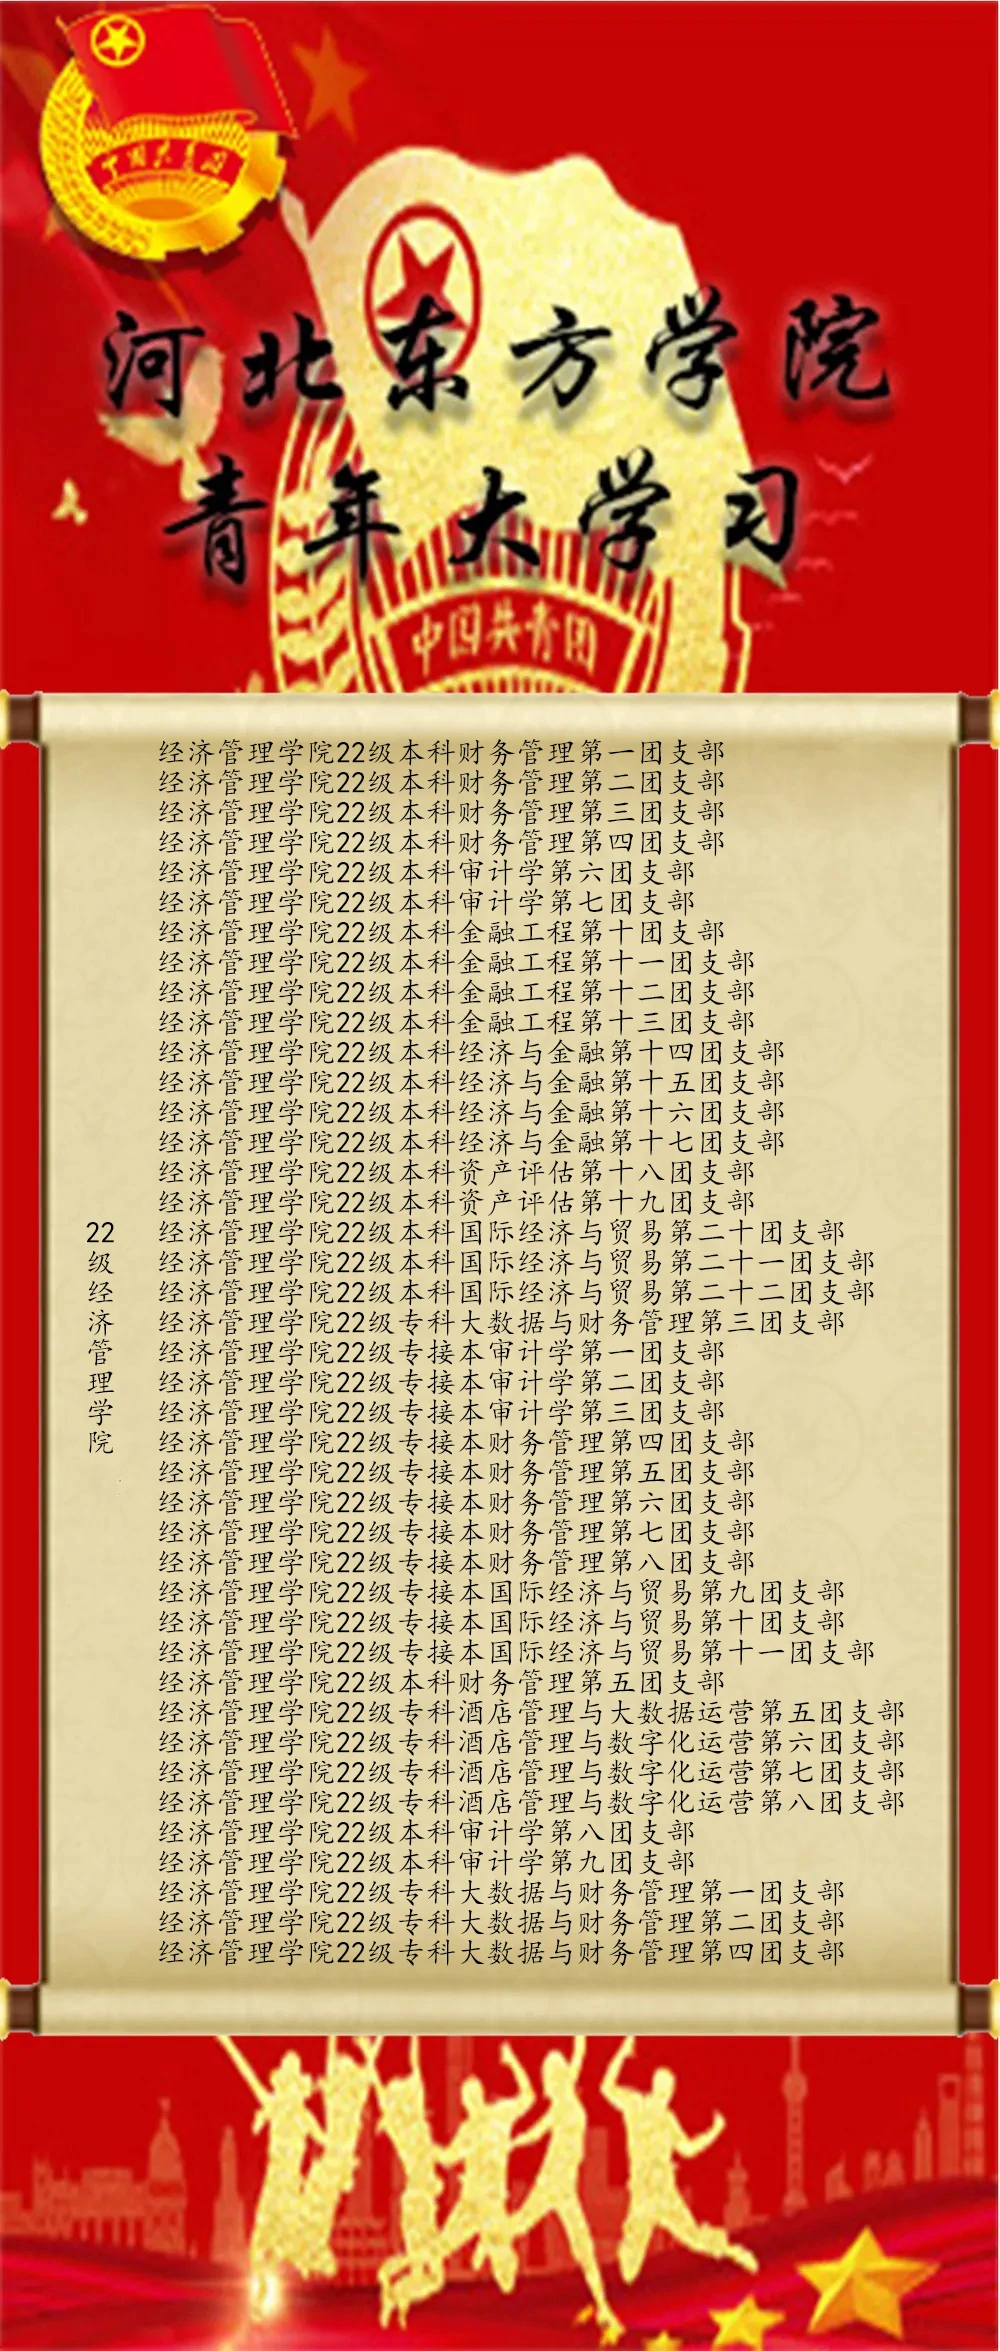 中国共青团
河北东方学院
青年大学习
中国共青团
经济管理学院22级本科财务管理第一团支部
经济管理学院22级本科财务管理第二团支部
经济管理学院22级本科财务管理第三团支部
经济管理学院22级本科财务管理第四团支部
经济管理学院22级本科审计学第六团支部
经济管理学院22级本科审计学第七团支部
经济管理学院22级本科金融工程第十团支部
经济管理学院22级本科金融工程第十一团支部
经济管理学院22级本科金融工程第十二团支部
经济管理学院22级本科金融工程第十三团支部
经济管理学院22级本科经济与金融第十四团支部
经济管理学院22级本科经济与金融第十五团支部
经济管理学院22级本科经济与金融第十六团支部
经济管理学院22级本科经济与金融第十七团支部
经济管理学院22级本科资产评估第十八团支部
经济管理学院22级本科资产评估第十九团支部
经济管理学院22级本科国际经济与贸易第二十团支部
经济管理学院22级本科国际经济与贸易第二十一团支部
经济管理学院22级本科国际经济与贸易第二十二团支部
经济管理学院22级专科大数据与财务管理第三团支部
经济管理学院22级专接本审计学第一团支部
经济管理学院22级专接本审计学第二团支部
经济管理学院22级专接本审计学第三团支部
经济管理学院22级专接本财务管理第四团支部
经济管理学院22级专接本财务管理第五团支部
经济管理学院22级专接本财务管理第六团支部
经济管理学院22级专接本财务管理第七团支部
经济管理学院22级专接本财务管理第八团支部
经济管理学院22级专接本国际经济与贸易第九团支部
经济管理学院22级专接本国际经济与贸易第十团支部
经济管理学院22级专接本国际经济与贸易第十一团支部
经济管理学院22级本科财务管理第五团支部
经济管理学院22级专科酒店管理与大数据运营第五团支部
经济管理学院22级专科酒店管理与数字化运营第六团支部
经济管理学院22级专科酒店管理与数字化运营第七团支部
经济管理学院22级专科酒店管理与数字化运营第八团支部
经济管理学院22级本科审计学第八团支部
经济管理学院22级本科审计学第九团支部
经济管理学院22级专科大数据与财务管理第一团支部
经济管理学院22级专科大数据与财务管理第二团支部
经济管理学院22级专科大数据与财务管理第四团支部
22级经济管理学院